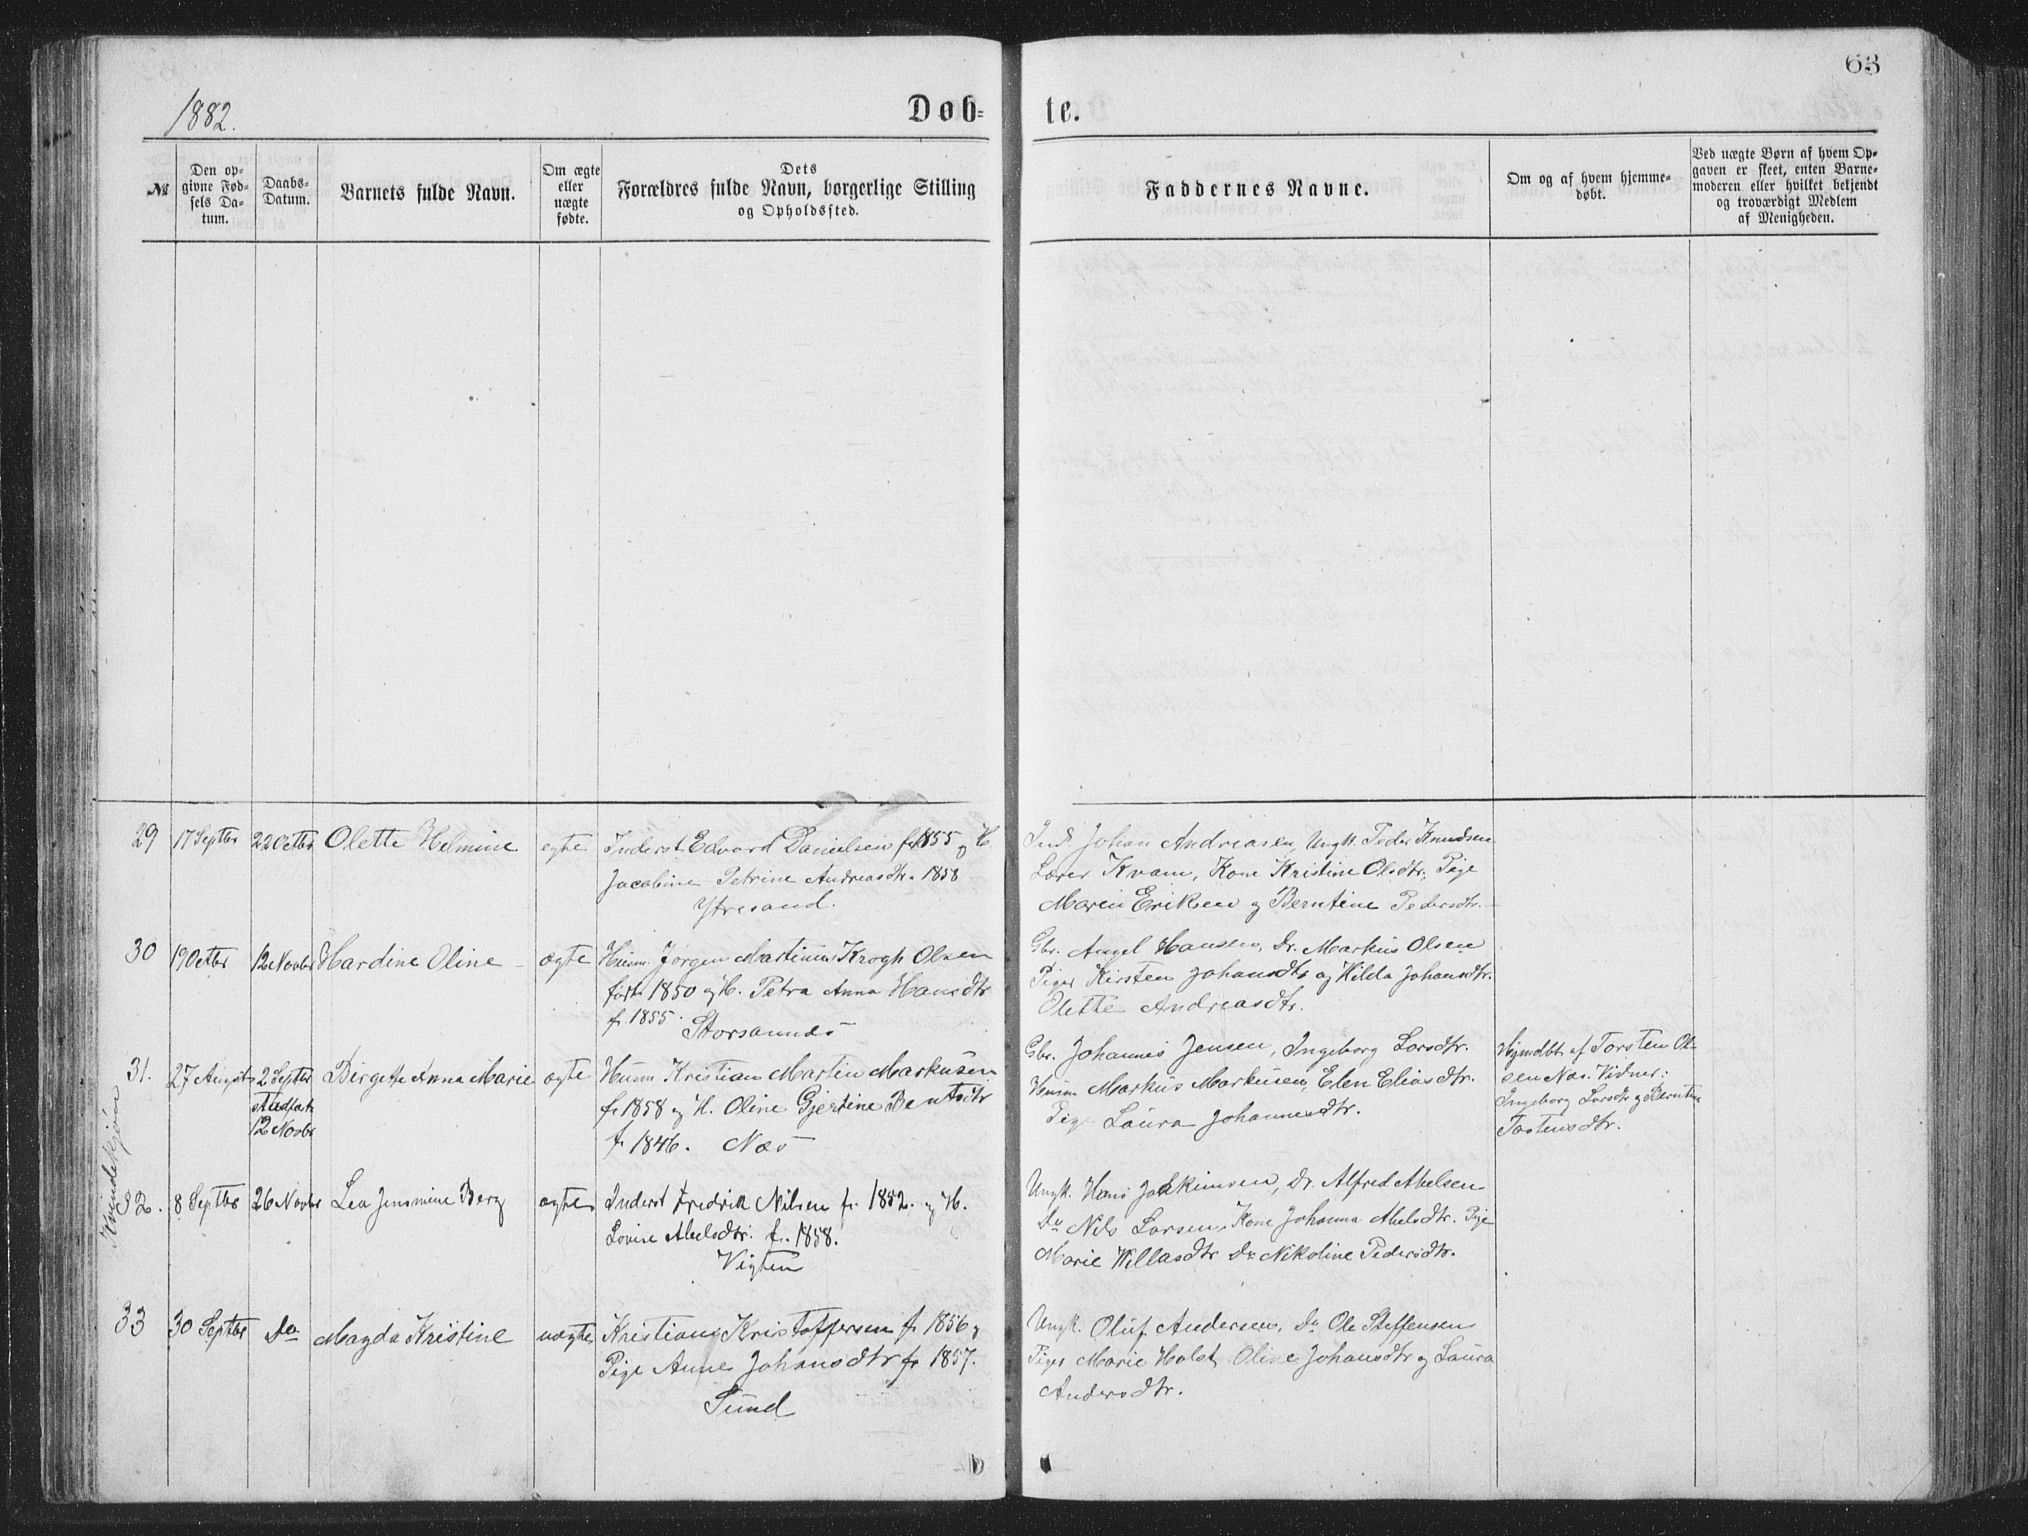 63
1882.
Døb-
te.
№
Den op-
givne Fød-
sels Da-
tum.
Daabs-
Datum.
Barnets fulde Navn.
Om ægte
eller
uægte
fødte.
Dets
Forældres fulde Navn, borgerlige Stilling
og Opholdssted.
Faddernes Navne.
Om og af hvem hjemme-
døbt.
Ved uægte Børn af hvem Op-
gaven er skeet, enten Barne-
moderen eller hvilket bekjendt
og troværdigt Medlem
af Menigheden.
Kvindekjøn
29
17 Septbr
22 Octbr
Olette Helmine
egte
Inderst Edvard Danielsen f. 1855 og H.
Jacobine Petrine Andreasdtr. 1858
Ytresand.
Ind. Johan Andreasen, Ungk. Peder Knudsen
Lærer Kvam, Kone Kristine Olsdtr, Pige
Maren Eriksen og Berntine Pedersdtr.
30
19 Octbr
12 Novbr
Hardine Oline
ægte
Husm. Jørgen Martinus Krogh Olsen
født 1850 og H. Petra Anna Hansdtr
f. 1855.
Storsandnes
Gbr. Angel Hansen, Do. Markus Olsen
Piger Kirsten Johansdtr og Hilda Johansdtr.
Olette Andreasdtr.
31.
27 August
2 Septbr
stadfæst
12 Novbr
Birgette Anna Marie
ægte
Husm Kristian Martin Markusen
f. 1858 og H. Oline Gjertine Bentsdtr
f. 1846. Næs
Gbr. Johannes Jensen, Ingeborg Larsdtr.
Husm Markus Markusen, Elen Eliasdtr.
Pige Laura Johannesdtr.
Hjmdbt. af Torsten Ol-
sen Næs. Vidner:
Ingeborg Larsdtr og Berntine
Torstensdtr.
32.
8 Septbr
26 Novbr
Lea Jensmine Berg
ægte
Inderst Fredrik Nilsen f. 1852. og H.
Lovise Abelsdtr. f. 1858.
Vigten
Ungk. Hans Joakimsen, Do. Alfred Abelsen
Do Nils Larsen, Kone Johanna Abelsdtr. Pige
Marie Willasdtr Do Nikoline Pedersdtr.
33
30 Septbr
Do
Magda Kristine
uægte
Kristian Kristoffersen f. 1856 og
Pige Anne Johansdtr f. 1857.
Sund
Ungk. Oluf Andersen, Do Ole Steffensen
Piger Marie Holst, Oline Johansdtr og Laura
Andersdtr.